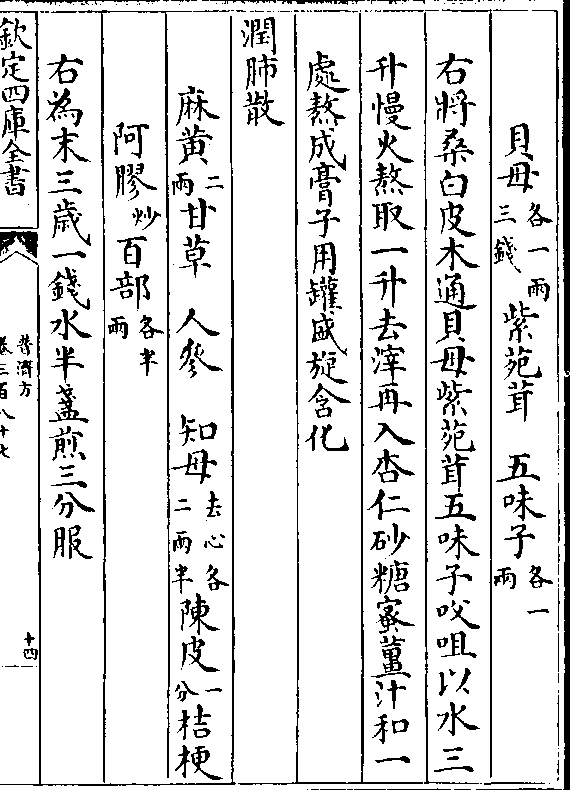 貝母各一兩三錢 紫苑茸 五味子各一兩
右將桑白皮木通貝母紫苑茸五味子㕮咀以水三
升慢火熬取一升去滓再入杏仁砂糖蜜薑汁和一
處熬成膏子用罐盛旋含化
潤肺散
麻黄二兩甘草 人參 知母去心各二兩半陳皮一分桔梗
阿膠炒百部各半兩
右為末三歲一錢水半盞煎三分服
欽定四庫全書
普濟方
卷三百八十七
十四